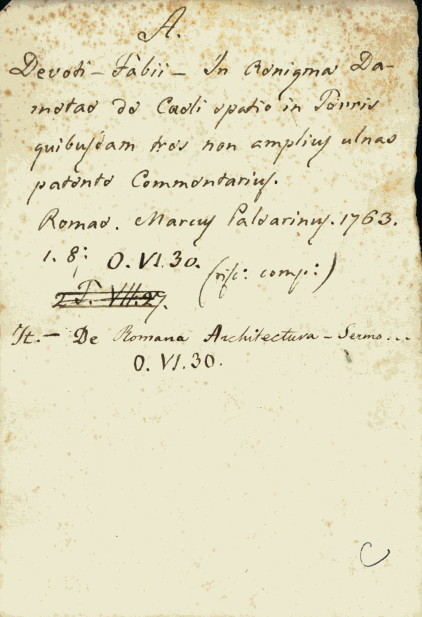 A.
Devoti - Fabii - In Ænigma Da-
metae de Cœli spatio in Terris
quibusdam tres non amplius ulnas
patente Commentarius.
Romae. Marcus Palearinus. 1763.
1. 8:
O.VI.30.
(risc: comp:)
2.T.VII.27.
It. - De Romana Architectura - Sermo...
O.VI.30.
C